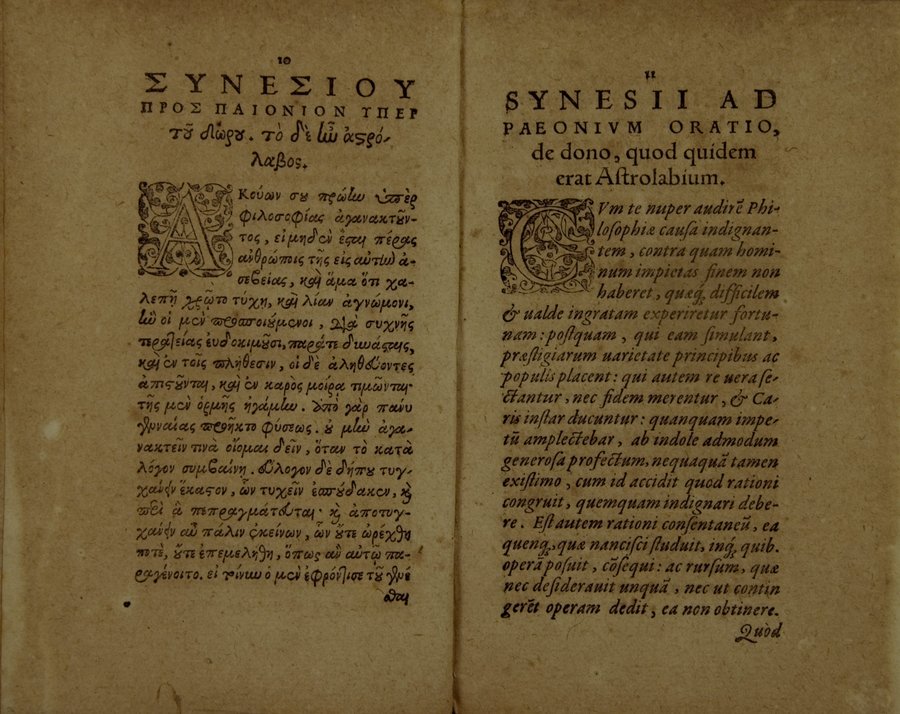 10
ΣΥΝΕΣΙΟΥ
ΠΡΟΣ ΠΑΙΟΝΙΟΝ ΥΠΕΡ
τοῦ δώρου. τὸ δὲ ἦν ἀστρό-
λαβος.
ΑΚούων σου πρώην ὑπὲρ
φιλοσοφίας ἀγανακτοῦν-
τος, εἰ μηδὲν ἔσται πέρας
ἀνθρώποις τῆς εἰς αὐτὴν ἀ-
σεβείας, καὶ ἅμα ὅτι χα-
λεπῇ χρῷτο τύχῃ, καὶ λίαν ἀγνώμονι,
ἣν οἱ μὲν προσποιούμενοι, διὰ συχνῆς
τερατείας εὐδοκιμοῦσι, παράτε δυνάσταις,
καὶ ἐν τοῖς πλήθεσιν, οἱ δὲ ἀληθεύοντες
ἀπιστοῦνται, καὶ ἐν καρὸς μοίρᾳ τιμῶνται·
τῆς μὲν ὁρμῆς ἠγάμην. ὑπὸ γὰρ πάνυ
γενναίας προῆκτο φύσεως. οὐ μὴν ἀγα-
νακτεῖν τινὰ οἴομαι δεῖν, ὅταν τὸ κατὰ
λόγον συμβαίνῃ. εὔλογον δὲ δήπου τυγ-
χάνειν ἕκαστον, ὧν τυχεῖν ἐσπούδακεν, καὶ
περὶ ἃ πεπραγμάτευται· καὶ ἀποτυγ-
χάνειν αὖ πάλιν ἐκείνων, ὧν οὔτε ὠρέχθη
ποτὲ, οὔτε ἐπεμελήθη, ὅπως ἂν αὐτῷ πα-
ραγένοιτο. εἰ τοίνυν ὁ μὲν ἐφρόντισε τοῦ γενέ
σθαι
11
SYNESII AD
PAEONIVM ORATIO,
de dono, quod quidem
erat Astrolabium.
CVm te nuper audirē Phi-
losophiæ causa indignan-
tem, contra quam homi-
num impietas finem non
haberet, quæq; difficilem
& ualde ingratam experiretur fortu-
nam: postquam, qui eam simulant,
præstigiarum uarietate principibus ac
populis placent: qui autem re uera se-
ctantur, nec fidem merentur, & Ca-
ris instar ducuntur: quanquam impe-
tū amplectebar, ab indole admodum
generosa profectum, nequaquā tamen
existimo, cum id accidit quod rationi
congruit, quemquam indignari debe-
re. Est autem rationi consentaneū, ea
quenq;, quæ nancisci studuit, inq; quib.
operā posuit, cōsequi: ac rursum, quæ
nec desiderauit unquā, nec ut contin
gerēt operam dedit, ea non obtinere.
Quòd